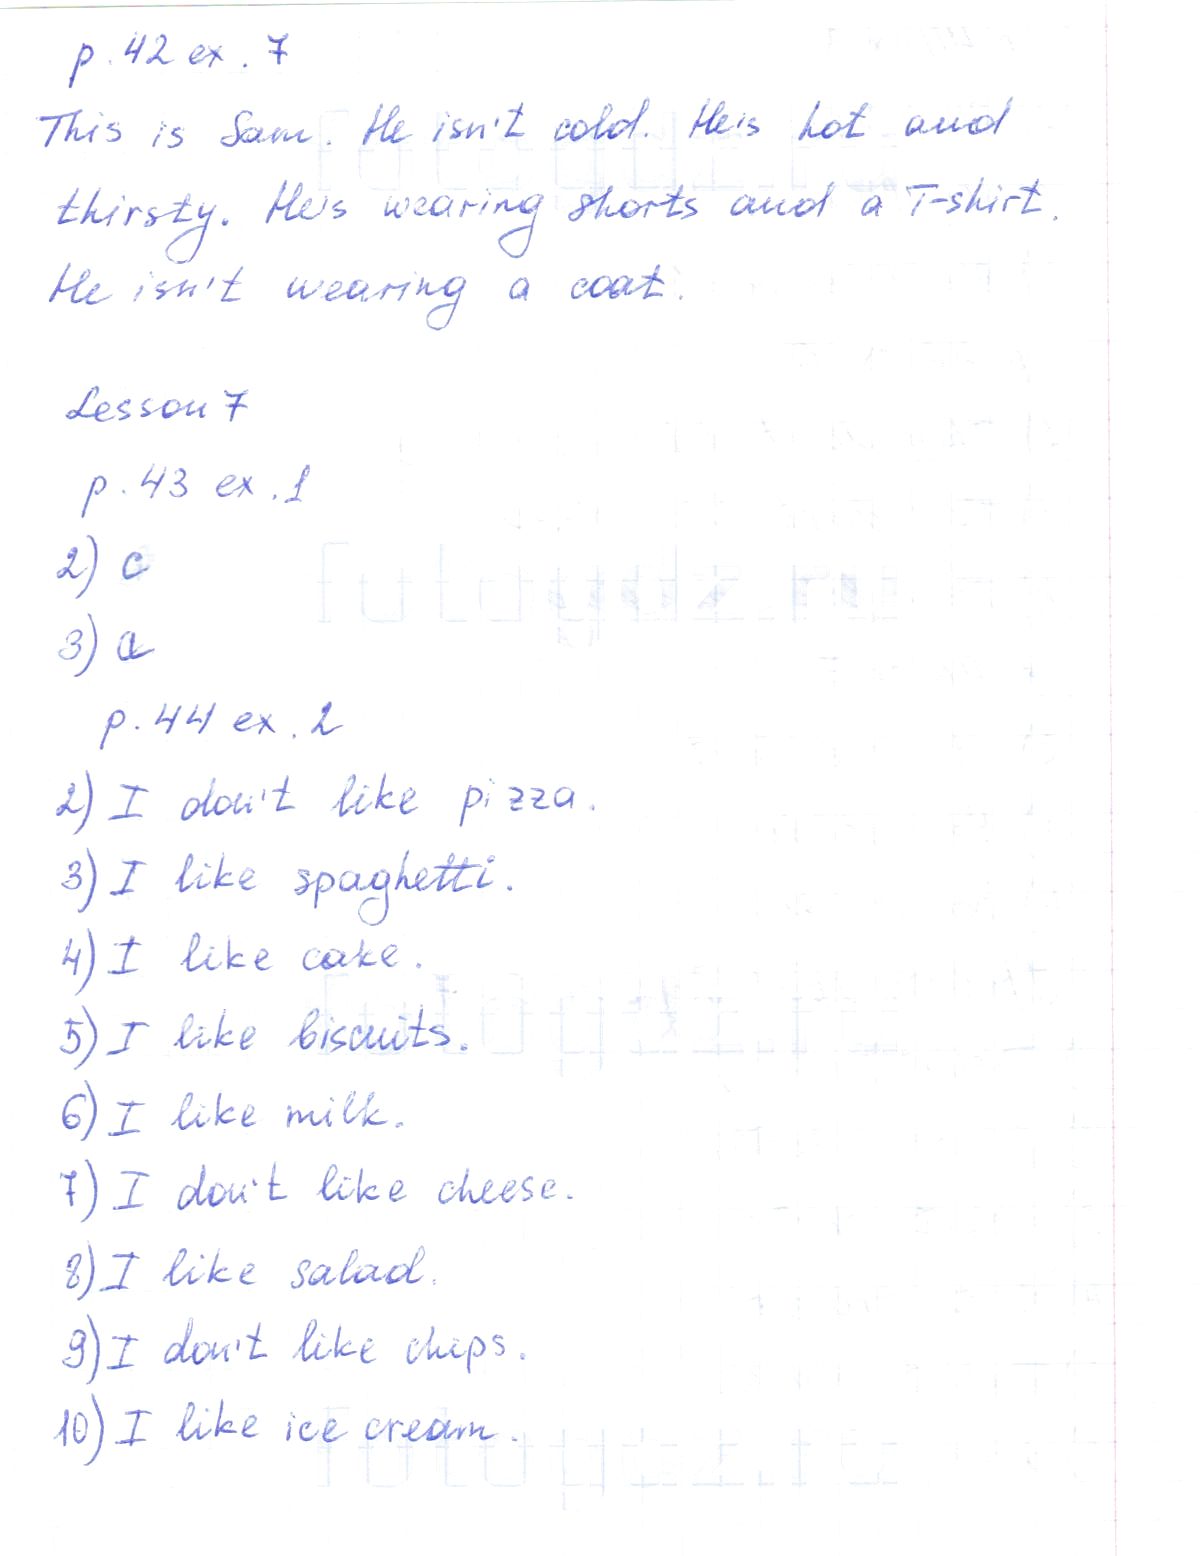 p. 42 ex. 7
This is Sam. He isn't cold. He's hot and
thirsty. He's wearing shorts and a T-shirt.
He isn't wearing a coat.
Lesson 7
p. 43 ex. 1
2) c
3) a
p. 44 ex. 2
2) I don't like pizza.
3) I like spaghetti.
4) I like cake.
5) I like biscuits.
6) I like milk.
7) I don't like cheese.
8) I like salad.
9) I don't like chips.
10) I like ice cream.